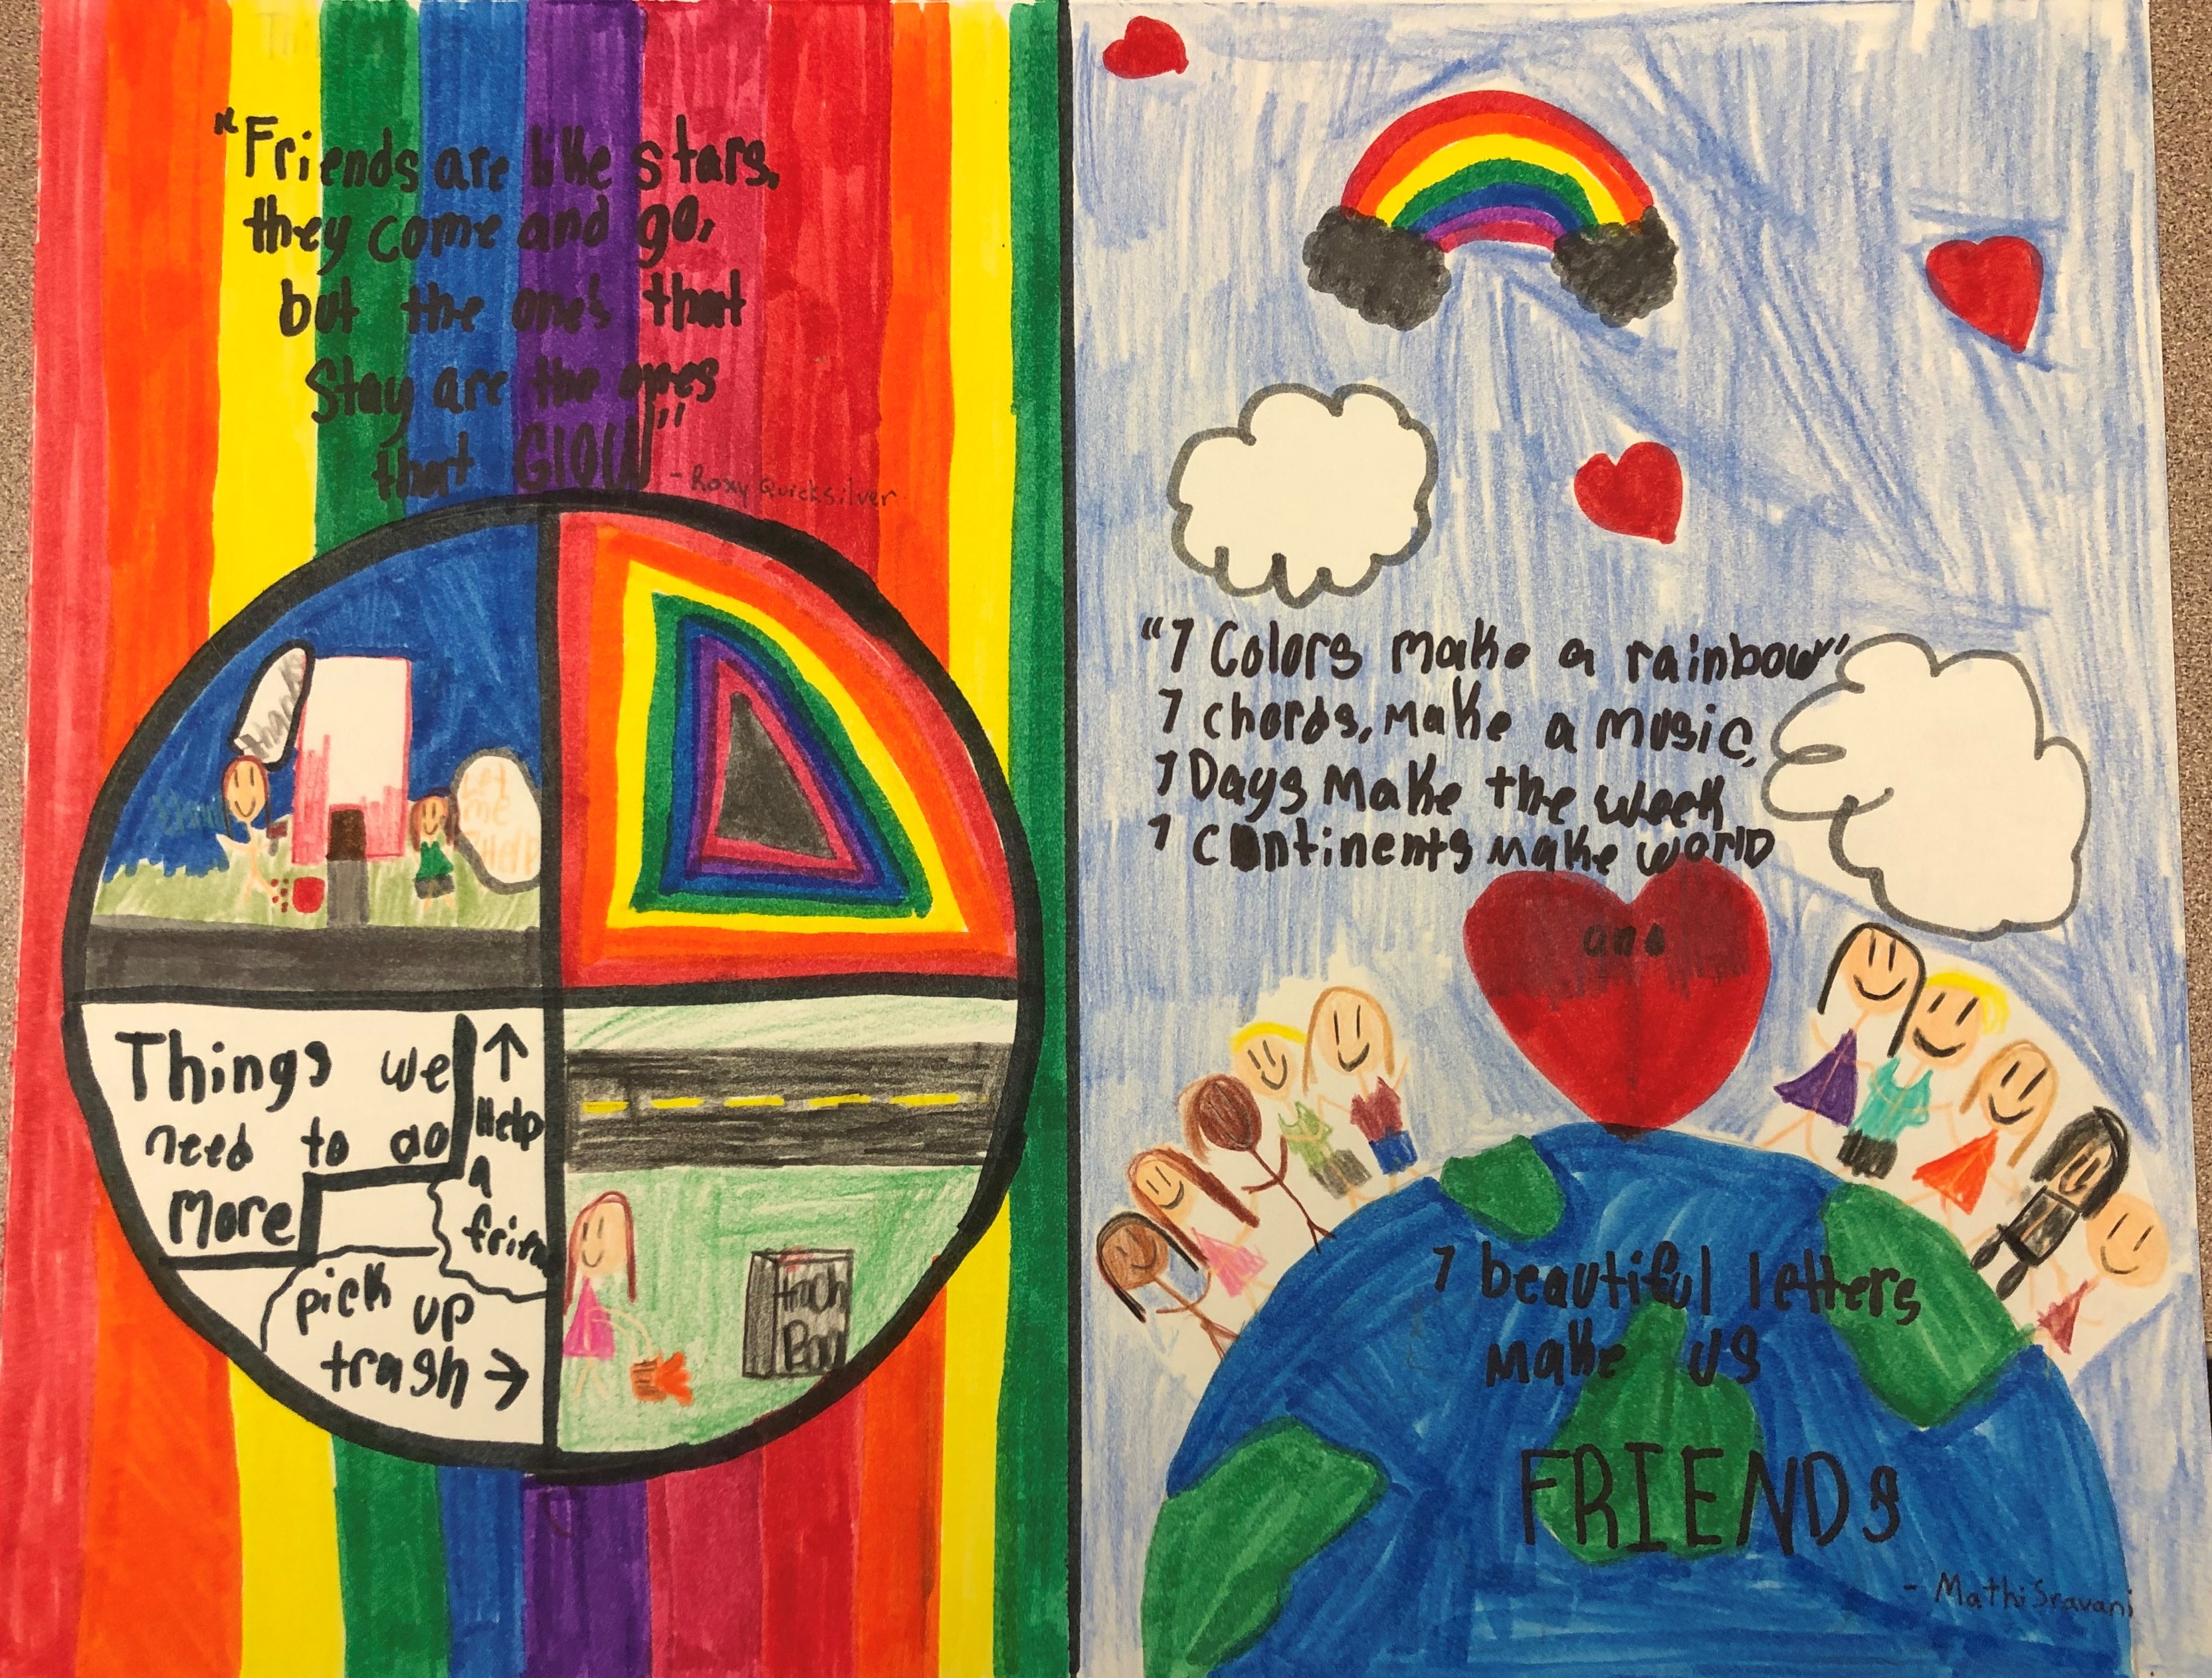 "Friends are like stars,
they come and go,
but the one's that
Stay are the ones
that GlOW"
- Roxy Quicksilver
thank
Let
me
Help
Things we
need to do
More
↑
Help
A
frien
pick up
trash →
trach
Bag
"7 Colors make a rainbow"
7 chords, make a music,
7 Days make the week
7 continents make world
and
7 beautiful letters
make us
FRIENDs
- Mathi Sravani